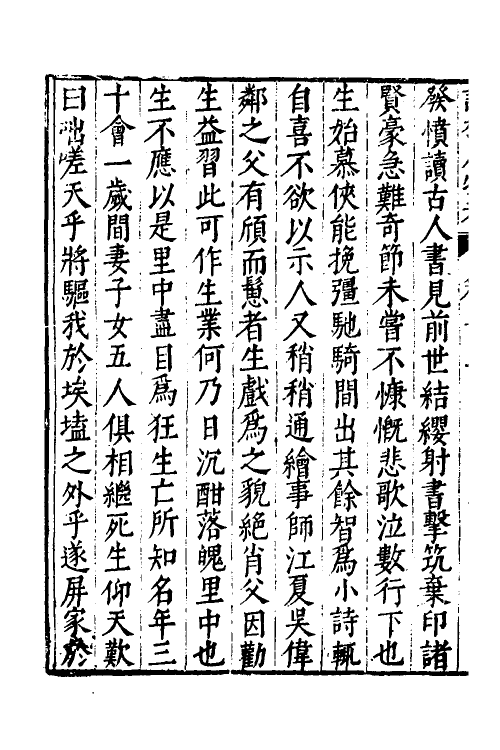 發憤讀古人書見前世結纓射書擊筑棄印諸
賢豪急難奇節未嘗不慷慨悲歌泣數行下也
生始慕俠能挽彊馳騎間出其餘智爲小詩輒
自喜不欲以示人又稍稍通繪事師江夏吳偉
鄰之父有頎而髯者生戲爲之貌絕肖父因勸
生益習此可作生業何乃日沉酣落魄里中也
生不應以是里中盡目爲狂生亡所知名年三
十會一歲間妻子女五人俱相繼死生仰天歎
曰咄嗟天乎將驅我於埃壒之外乎遂屏家於